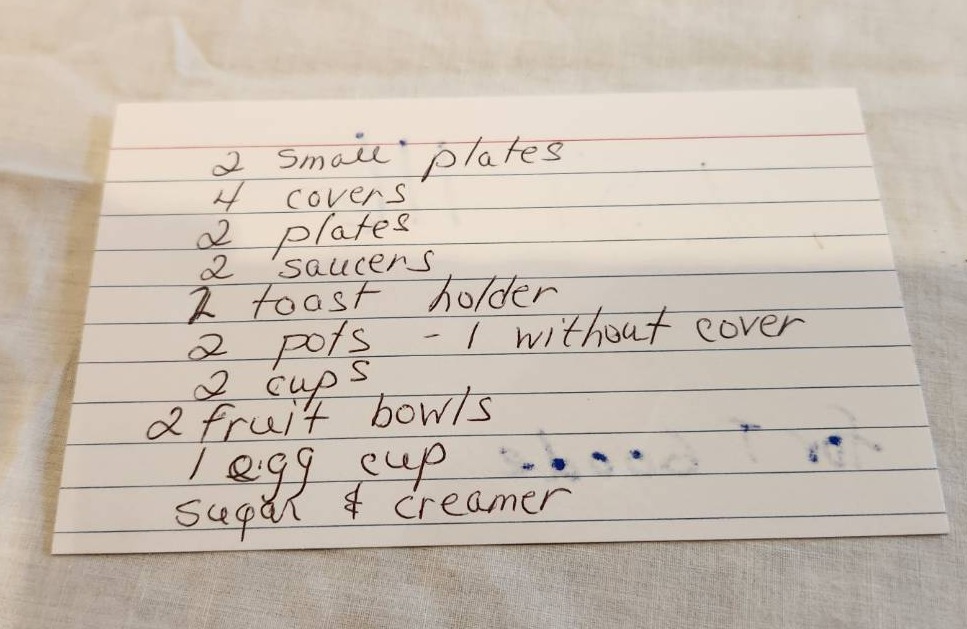 2 small plates
4 covers
2 plates
2 saucers
toast holder
2 pots - 1 without cover
2 cups
2 fruit bowls
1 egg cup
sugar & creamer